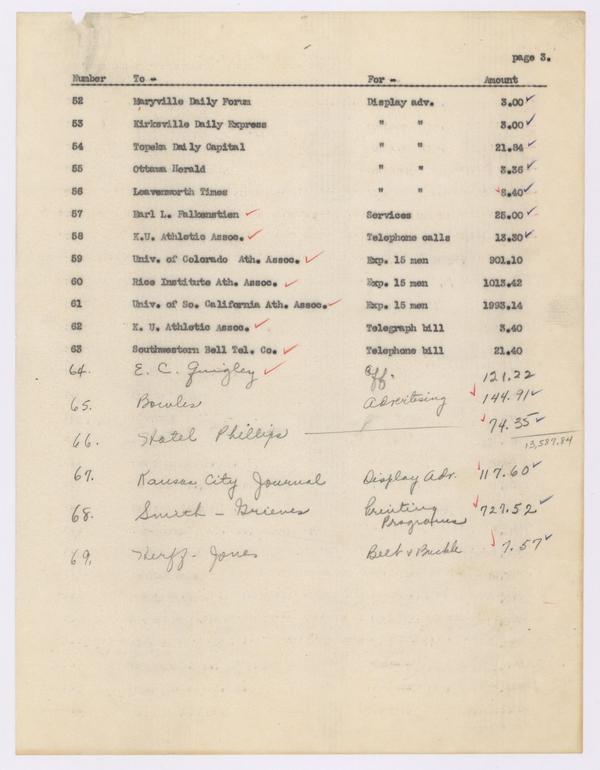 page 3.
Number To - For - Amount
52 Maryville Daily Forum Display adv. 3.00
53 Kirksville Daily Express " " 3.00
54 Topeka Daily Capital " " 21.84
55 Ottawa Herald " " 3.36
56 Leavenworth Times " " 8.40
57 Earl L. Falkenstien Services 25.00
58 K.U. Athletic Assoc. Telephone calls 13.30
59 Univ. of Colorado Ath. Assoc. Exp. 15 men 901.10
60 Rice Institute Ath. Assoc. Exp. 15 men 1013.42
61 Univ. of So. California Ath. Assoc. Exp. 15 men 1993.14
62 K. U. Athletic Assoc. Telegraph bill 3.40
63 Southwestern Bell Tel. Co. Telephone bill 21.40
64. E. C. Quigley Off. 121.22
65. Bowles Advertising 144.91
66. Hotel Phillips 74.35
13,587.84
67. Kansas City Journal Display Adv. 117.60
68. Smith - Grieves Printing Programs 727.52
69. Herff-Jones Belt & Buckle 7.57